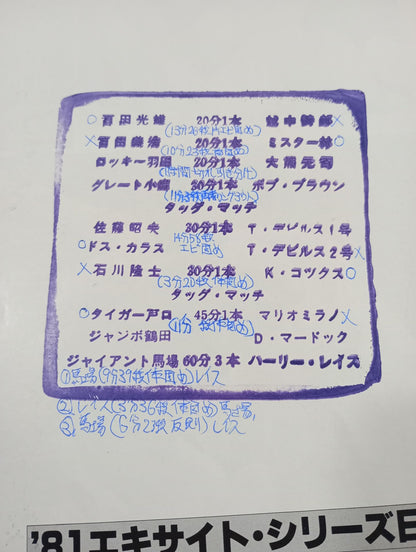 ○百田光雄 20分1本 越中詩郎×
(13分26秒片エビ固め)
×百田義浩 20分1本 ミスター林○
(10分23秒 固め)
ロッキー羽田 20分1本 大熊元司
(時間切れ引き分け)
グレート小鹿 30分1本 ボブ・ブラウン
タッグ・マッチ
佐藤昭夫 30分1本 T・デビルス1号
14分58秒
○ドス・カラス エビ固め T・デビルス2号×
×石川隆士 30分1本 K・コックス○
(3分20秒体固め)
タッグ・マッチ
○タイガー戸口 45分1本 マリオミラノ×
(11分 秒体固め)
ジャンボ鶴田 D・マードック
ジャイアント馬場 60分3本 ハーリー・レイス
①馬場(9分39秒体固め)レイス
②レイス(3分36秒体固め)馬場
③馬場(6分2秒反則)レイス
'81エキサイト・シリーズ日